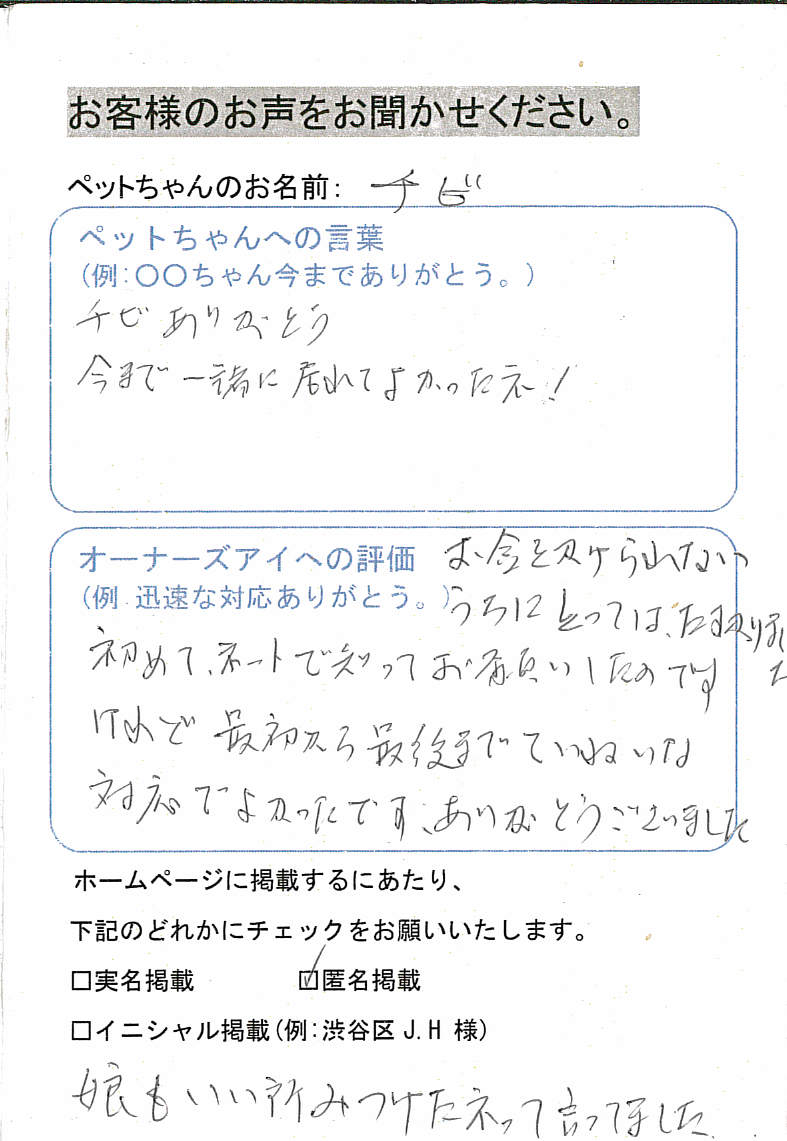 お客様のお声をお聞かせください。
ペットちゃんのお名前: チビ
ペットちゃんへの言葉
(例:〇〇ちゃん今までありがとう。)
チビありがとう
今まで一緒に居れてよかったネ!
オーナーズアイへの評価
(例.迅速な対応ありがとう。)
お金をかけられない
うちにとっては、たすかりました
初めて、ネットで知ってお願いしたのです
けれど最初から最後までていねいな
対応でよかったです、ありがとうございました
ホームページに掲載するにあたり、
下記のどれかにチェックをお願いいたします。
□実名掲載 ☑匿名掲載
□イニシャル掲載(例:渋谷区 J.H 様)
娘もいい所みつけたネって言ってました